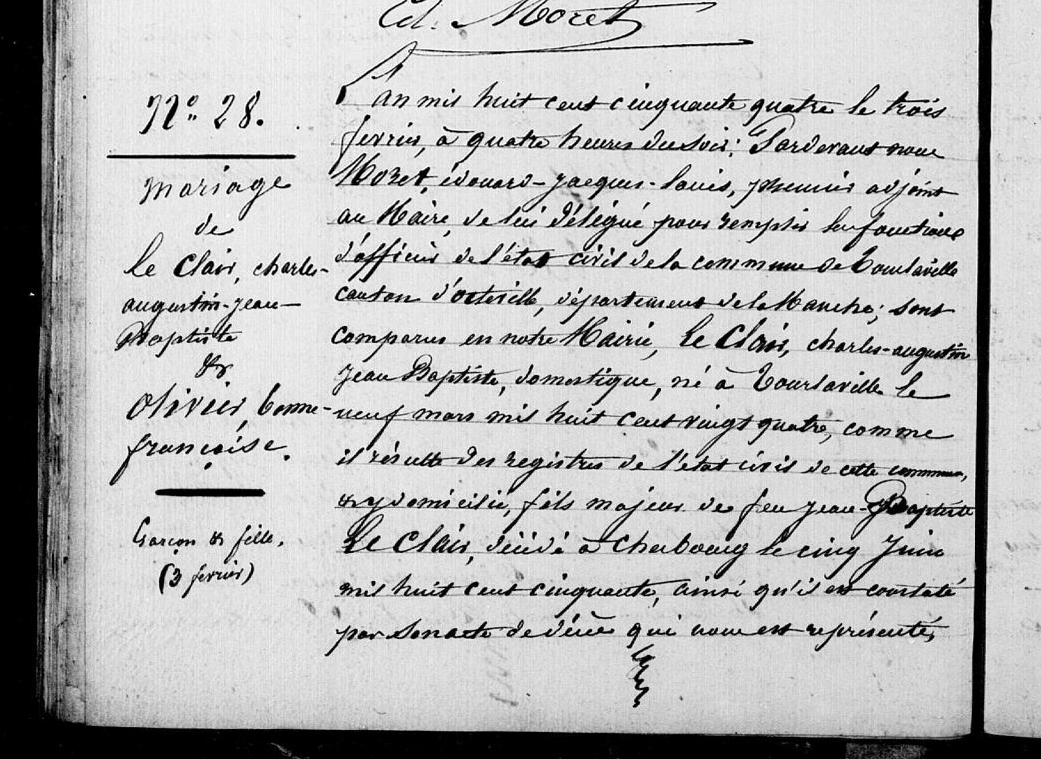 Ed. Moret
N° 28.
mariage
de
le Clair, charles-
augustin-jean-
Baptiste
&
olivier, bonne-
françoise.
Garçon & fille.
(3 fevrier)
L'an mil huit cent cinquante quatre le trois
fevrier, à quatre heures du soir; Pardevant nous
Moret, édouard-jacques-louis, premier adjoint
au Maire, de lui délégué pour remplir les fonctions
d'officier de l'état civil de la commune de Tourlaville
canton d'octeville, département de la Manche; sont
comparus en notre Mairie, Le Clair, charles-augustin
jean Baptiste, domestique, né à Tourlaville le
neuf mars mil huit cent vingt quatre, comme
il résulte des registres de l'état civil de cette commune,
& y domicilié, fils majeur de feu jean-Baptiste
Le Clair, décédé à cherbourg le cinq juin
mil huit cent cinquante, ainsi qu'il est constaté
par son acte de décès qui nous est représenté,